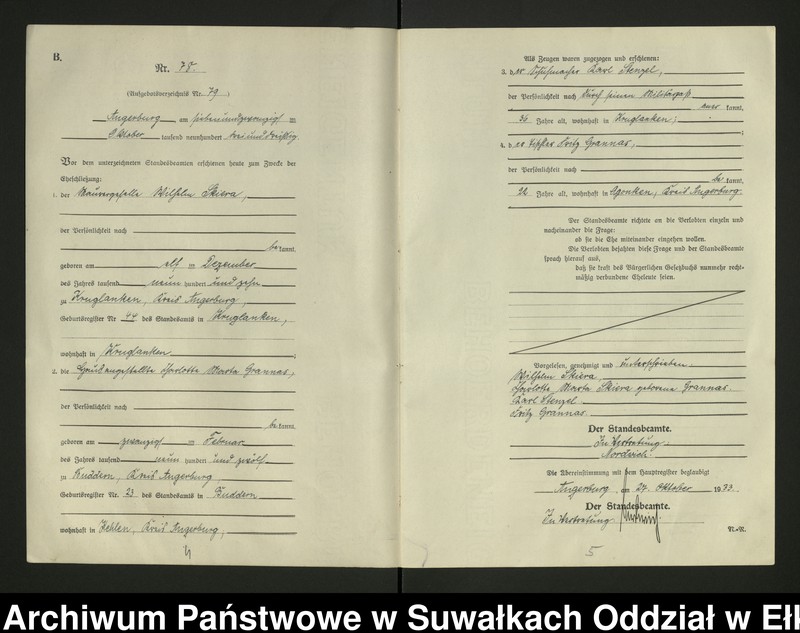 B.
Nr. 75.
(Aufgebotsverzeichnis Nr. 79)
Angerburg am siebenundzwanzigsten
Oktober tausend neunhundert dreiunddreißig
Vor dem unterzeichneten Standesbeamten erschienen heute zum Zwecke der
Eheschließung:
1. der Maurergeselle Wilhelm Skiera,
der Persönlichkeit nach
be kannt,
geboren am elf ten Dezember
des Jahres tausend neun hundert und zehn
zu Kruglanken, Kreis Angerburg,
Geburtsregister Nr 44 des Standesamts in Kruglanken,
wohnhaft in Kruglanken;
2. die Hausangestellte Charlotte Marta Grannas,
der Persönlichkeit nach
be kannt,
geboren am zwanzigsten Februar
des Jahres tausend neun hundert und zwölf
zu Buddern, Kreis Angerburg,
Geburtsregister Nr. 23 des Standesamts in Buddern
wohnhaft in Kehlen, Kreis Angerburg,
4
Als Zeugen waren zugezogen und erschienen:
3. der Schuhmacher Karl Stenzel,
der Persönlichkeit nach durch seinen Militärpaß
aner kannt,
36 Jahre alt, wohnhaft in Kruglanken;
4. der Tischler Fritz Grannas,
der Persönlichkeit nach
be kannt,
22 Jahre alt, wohnhaft in Kreis Angerburg.
Der Standesbeamte richtete an die Verlobten einzeln und
nacheinander die Frage:
ob sie die Ehe miteinander eingehen wollen.
Die Verlobten bejahten diese Frage und der Standesbeamte
sprach hierauf aus,
daß sie kraft des Bürgerlichen Gesetzbuchs nunmehr recht-
mäßig verbundene Eheleute seien.
Vorgelesen, genehmigt und unterschrieben
Wilhelm Skiera,
Charlotte Marta Skiera geborene Grannas.
Karl Stenzel.
Fritz Grannas.
Der Standesbeamte.
In Vertretung.
Die Übereinstimmung mit dem Hauptregister beglaubigt
Angerburg, am 27. Oktober 1933.
Der Standesbeamte.
In Vertretung
N.-R.
5
Archiwum Państwowe w Suwałkach Oddział w Ełk